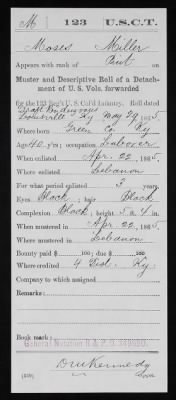 M | 123 | U.S.C.T.
Moses Miller
Appears with rank of Pvt on
Muster and Descriptive Roll of a Detach-
ment of U. S. Vols. forwarded
for the 123 Reg't U. S. Col'd Infantry. Roll dated
Draft Rendezvous
Louisville Ky May 29, 1865.
Where born Green Co Ky
Age 40 y'rs; occupation Laborer
When enlisted Apr. 22, 1865.
Where enlisted Lebanon
For what period enlisted 3 years.
Eyes Black; hair Black
Complexion Black; height 5 ft. 4 in.
When mustered in Apr. 22, 1865.
Where mustered in Lebanon
Bounty paid $ 100; due $ 100
Where credited 4 Dist. Ky.
Company to which assigned
Remarks:
Book mark:
General Notation R & P
Kennedy
(339) Copyist.